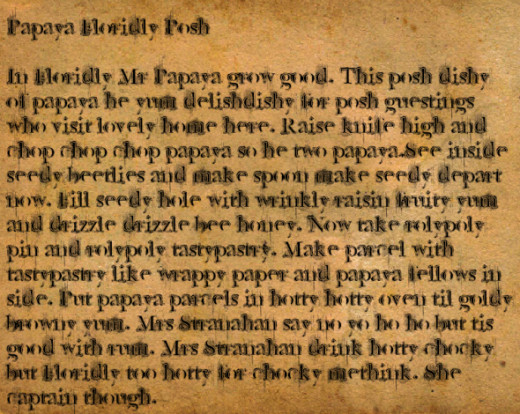 Papaya Floridly Posh
In Floridly Mr Papaya grow good. This posh dishy
of papaya he yum delishdishy for posh guestings
who visit lovely home here. Raise knife high and
chop chop chop papaya so he two papaya.See inside
seedy beetlies and make spoon make seedy depart
now. Fill seedy hole with wrinkly raisin fruity yum
and drizzle drizzle bee honey. Now take rolypoly
pin and rolypoly tastypastry. Make parcel with
tastypastry like wrappy paper and papaya fellows in
side. Put papaya parcels in hotty hotty oven til goldy
browny yum. Mrs Stranahan say no yo ho ho but tis
good with rum. Mrs Stranahan drink hotty chocky
but Floridly too hotty for chocky methink. She
captain though.